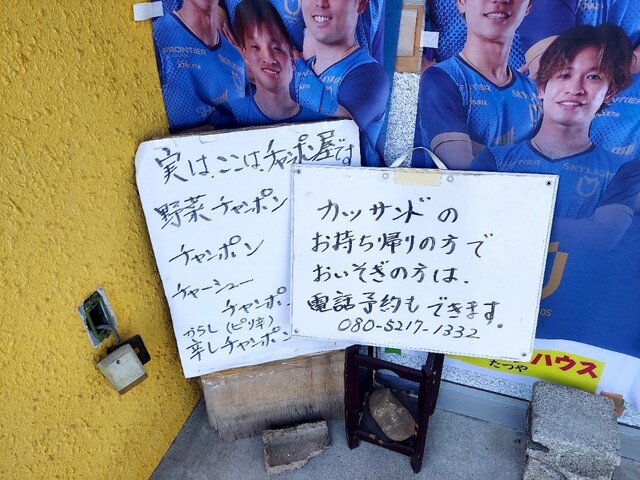 FRONTIER
実は、ここは、チャンポン屋です
野菜チャンポン
チャンポン
チャーシュー
チャンポン
からし(ピリ辛)
辛しチャンポン
カツサンドの
お持ち帰りの方で
おいそぎの方は、
電話予約もできます。
080-5217-1332
SKYLIGHT
ハウス
たつや